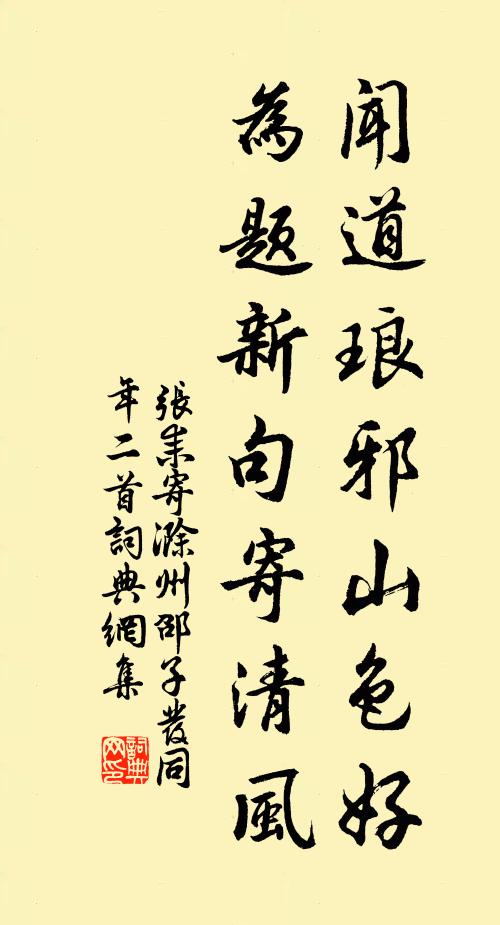 闻道琅邪山色好
為题新句寄清風
張耒寄滁州邵子發同
年二首詞典網集
詞典網印